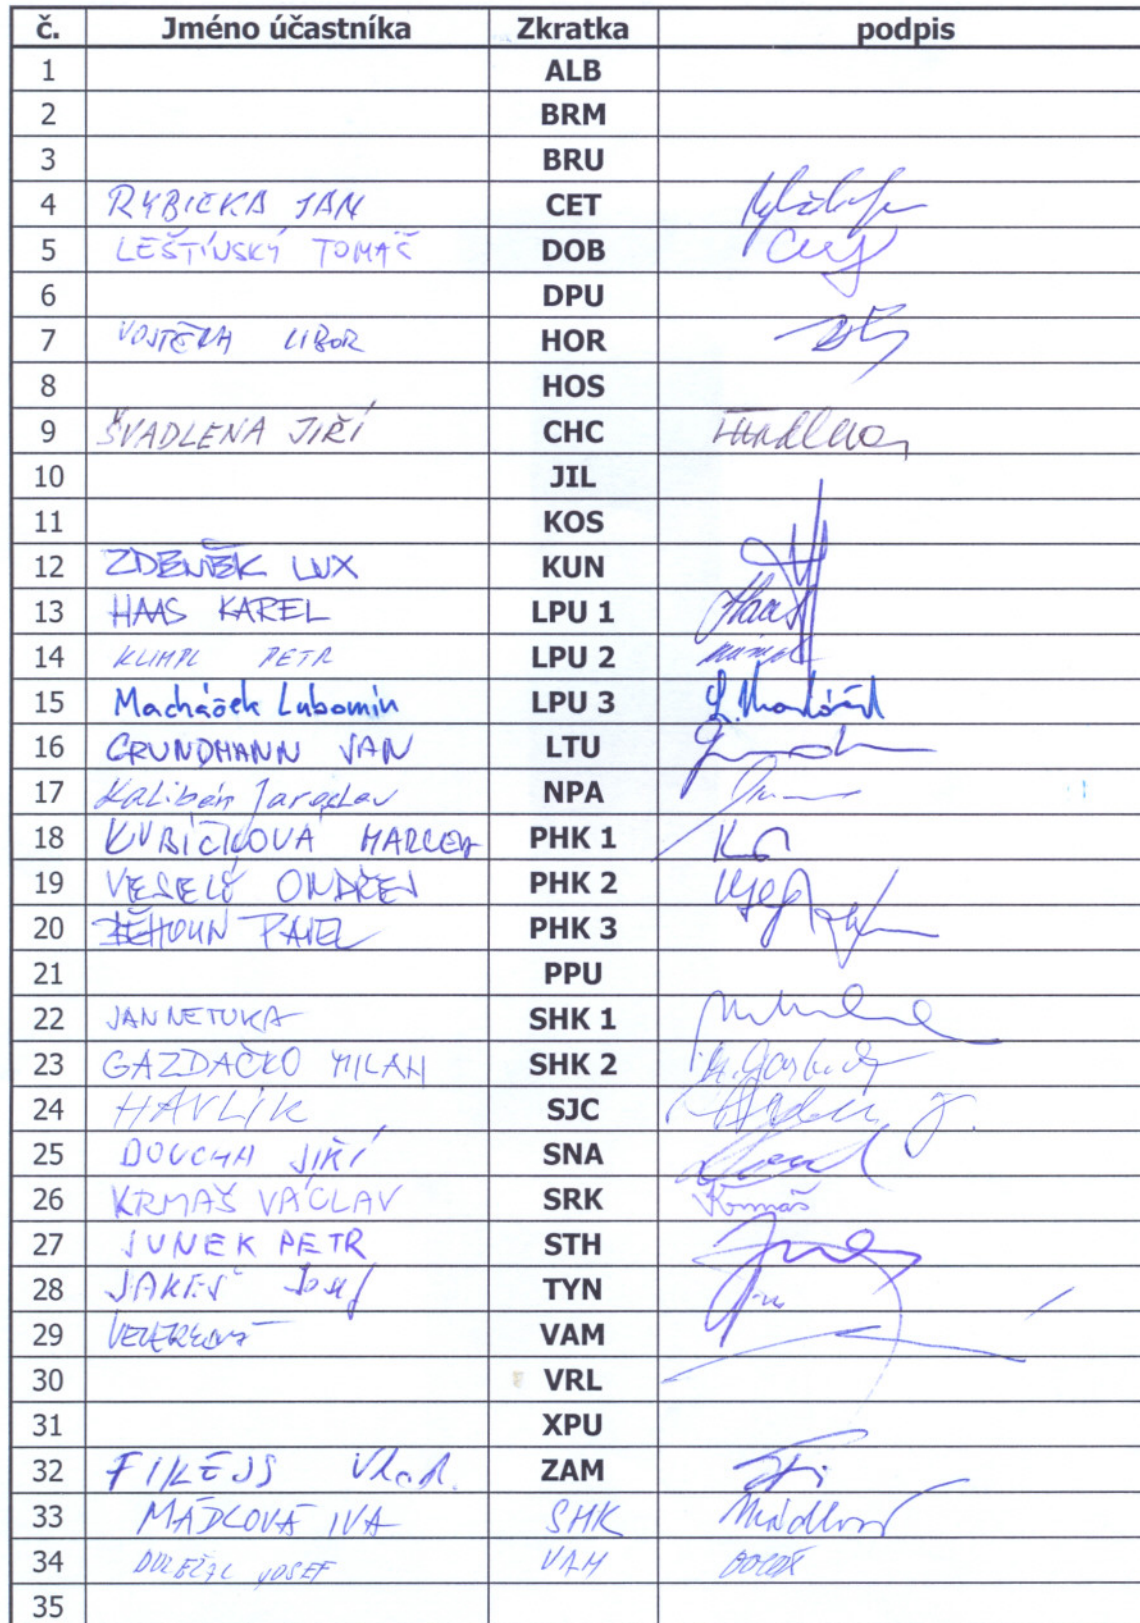 č. Jméno účastníka Zkratka podpis
1 ALB
2 BRM
3 BRU
4 RYBIČKA JAN CET
5 LEŠTÍNSKÝ TOMÁŠ DOB
6 DPU
7 VOJTĚCH LIBOR HOR
8 HOS
9 ŠVADLENA JIŘÍ CHC
10 JIL
11 KOS
12 ZDENĚK LUX KUN
13 HAAS KAREL LPU 1 Haas
14 KLIMPL PETR LPU 2
15 Macháček Lubomír LPU 3 L. Macháček
16 GRUNDMANN JAN LTU
17 Kalibán Jaroslav NPA
18 KUBÍČKOVÁ MARCELA PHK 1
19 VESELÝ ONDŘEJ PHK 2
20 ŘEHOUN PAVEL PHK 3
21 PPU
22 JAN NETUKA SHK 1
23 GAZDAČKO MILAN SHK 2
24 HAVLÍK SJC
25 DOUCHA JIŘÍ SNA
26 KRMAŠ VÁCLAV SRK Krmaš
27 JUNEK PETR STH
28 JAKEŠ Josef TYN
29 VAM
30 VRL
31 XPU
32 FIKEJS Vlad. ZAM
33 MÁDLOVÁ IVA SHK Mádlová
34 DOLEŽAL JOSEF VAM
35